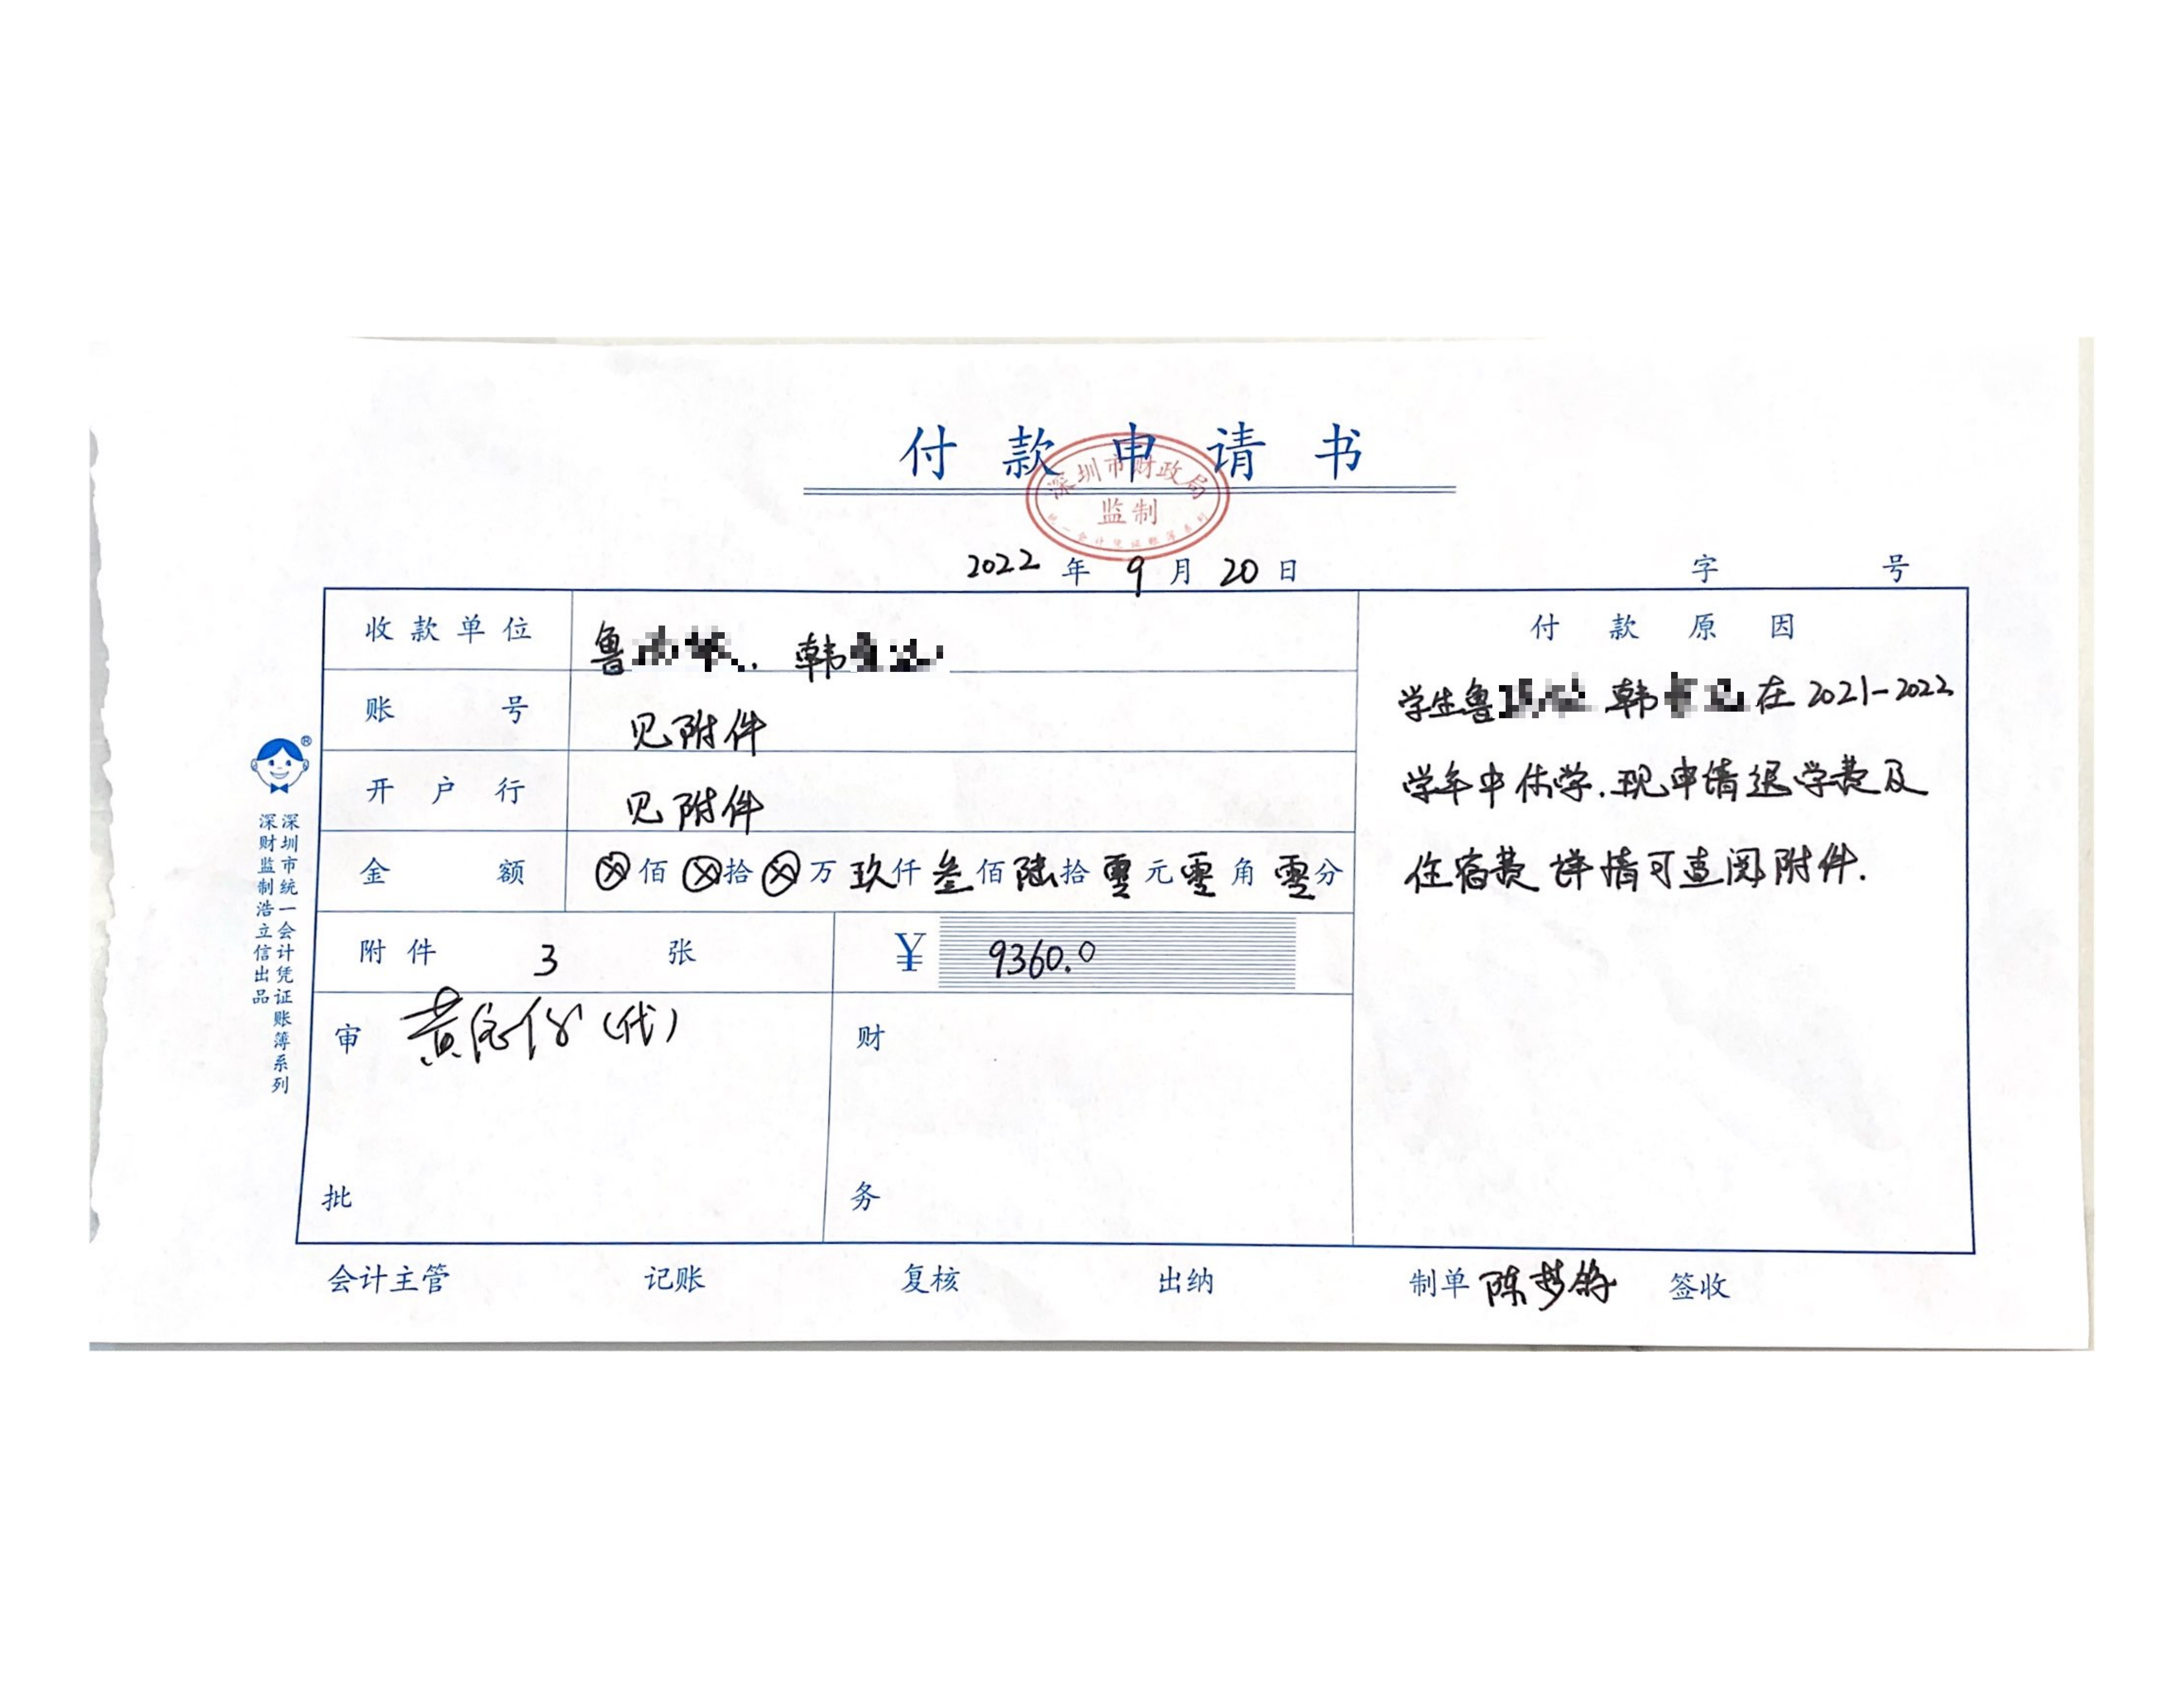 付款申请书
深圳市财政局
监制
统一会计凭证账簿系列
2022 年 9 月 20 日 字 号
收款单位 鲁 . 韩
账号 见附件
开户行 见附件
金额 ⊗佰⊗拾⊗万玖仟叁佰陆拾零元零角零分
附件 3 张 ¥ 9360.0
审批 黄 (代)
财务
付款原因
学生鲁 韩 在2021-2022
学年中休学.现申请退学费及
住宿费 详情可查阅附件.
会计主管 记账 复核 出纳 制单 陈梦 签收
深圳市统一会计凭证账簿系列
深财监制浩立信出品
®